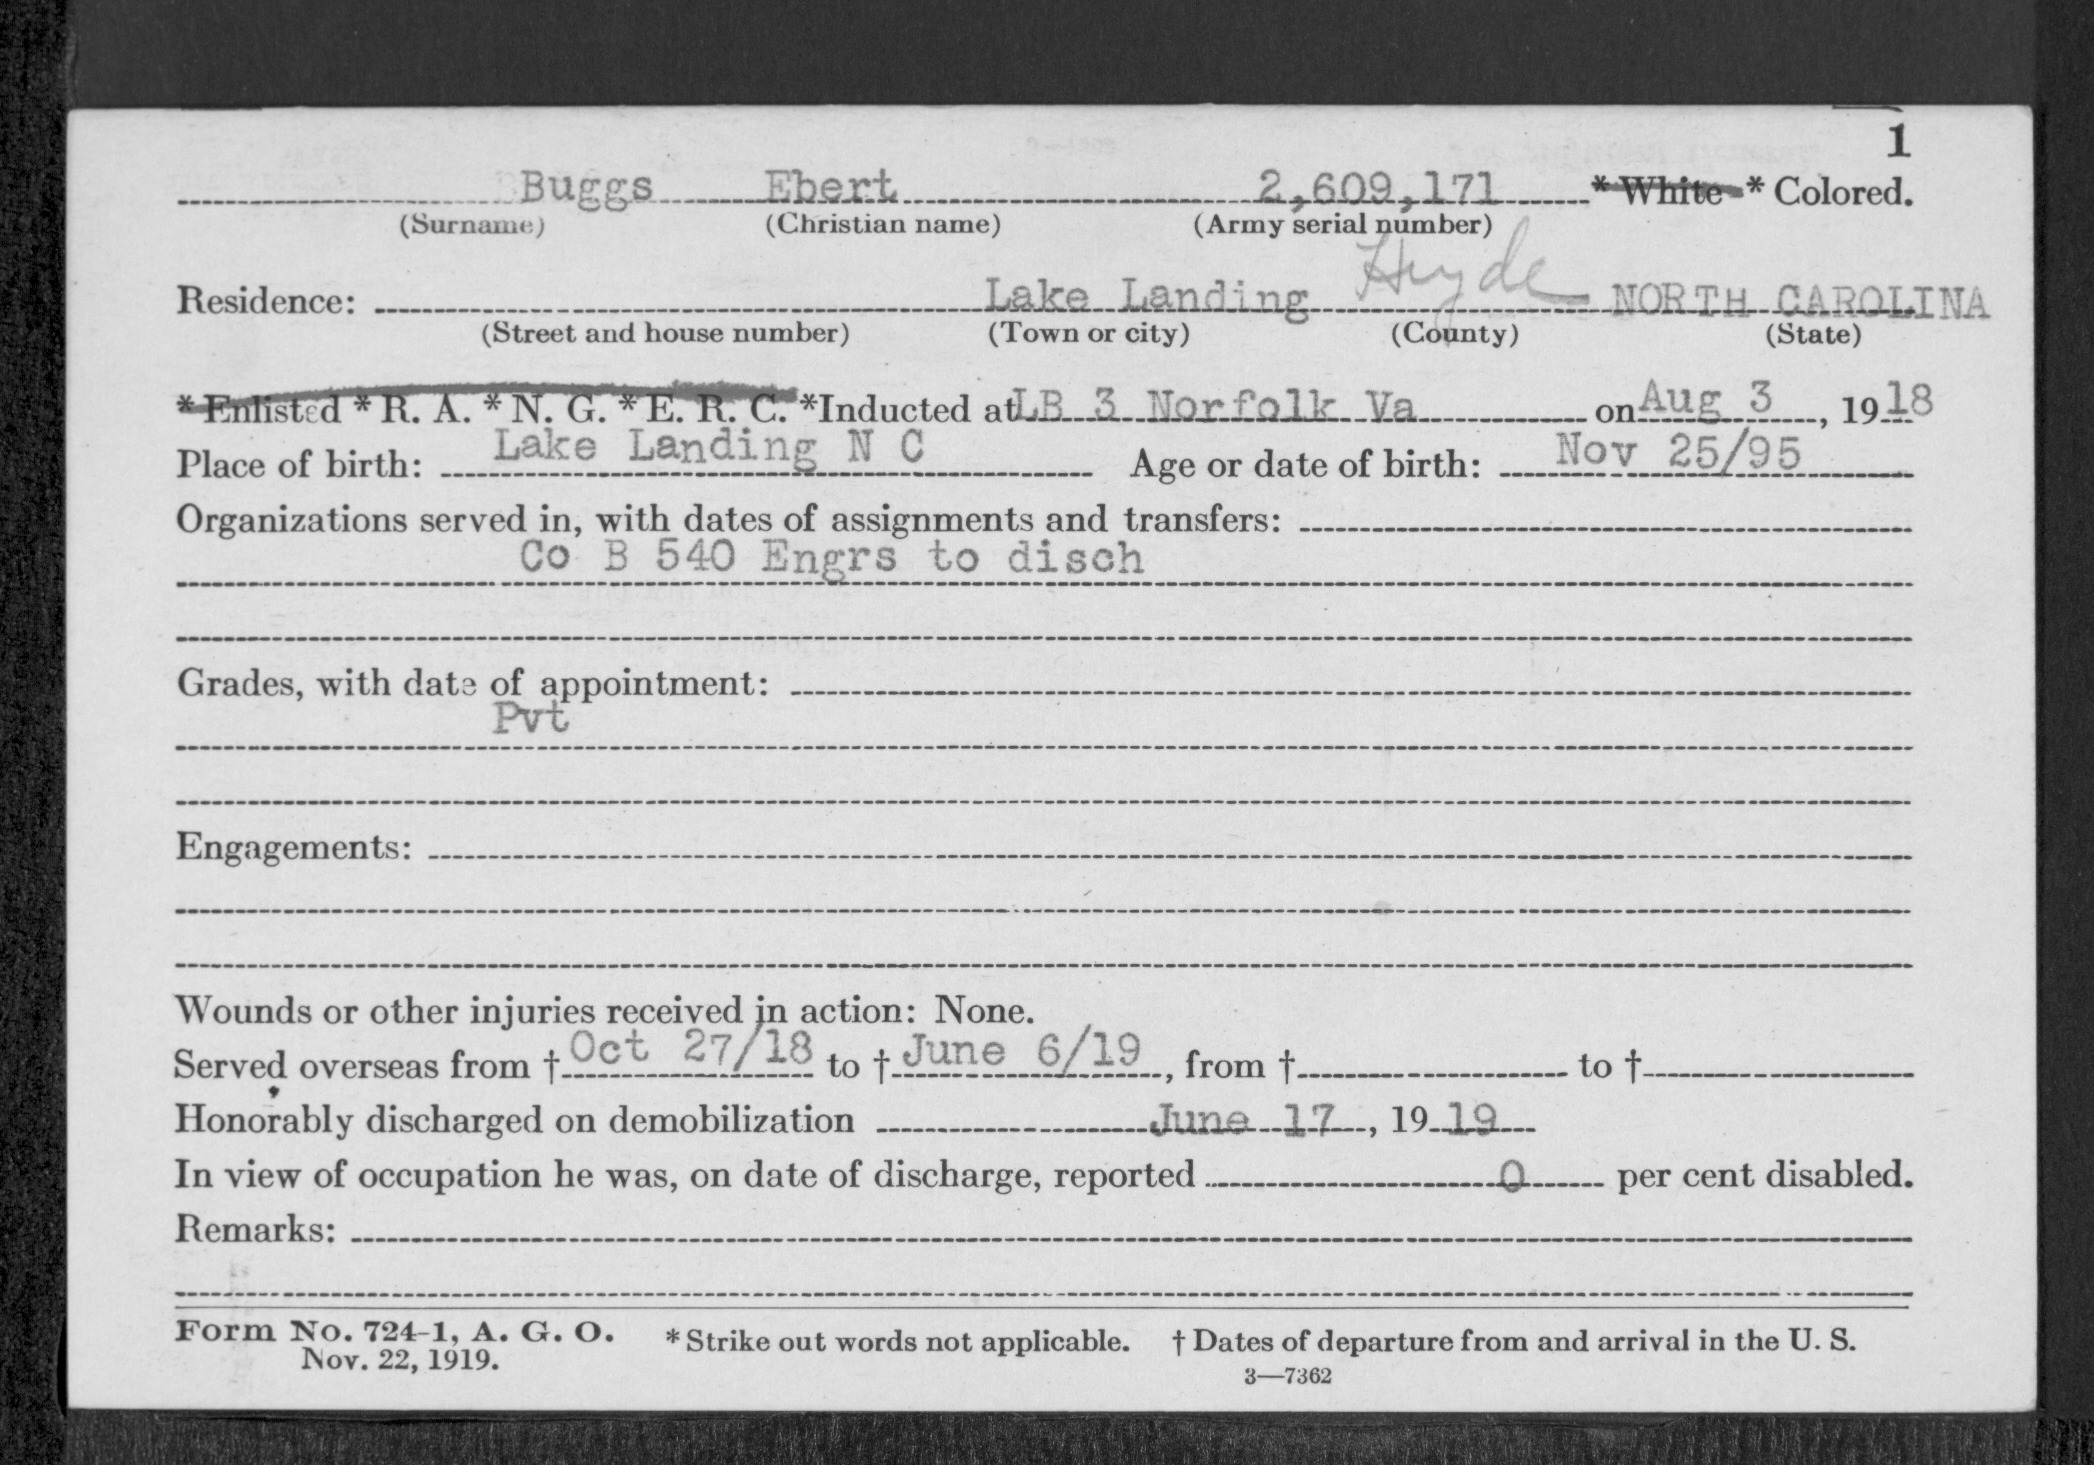 1
Buggs Ebert 2,609,171 * White * Colored.
(Surname) (Christian name) (Army serial number)
Residence: Lake Landing Hyde NORTH CAROLINA
(Street and house number) (Town or city) (County) (State)
* Enlisted * R. A. * N. G. * E. R. C. *Inducted at LB 3 Norfolk Va on Aug 3, 1918
Place of birth: Lake Landing N C Age or date of birth: Nov 25/95
Organizations served in, with dates of assignments and transfers:
Co B 540 Engrs to disch
Grades, with date of appointment:
Pvt
Engagements:
Wounds or other injuries received in action: None.
Served overseas from † Oct 27/18 to † June 6/19, from † to †
Honorably discharged on demobilization June 17, 1919
In view of occupation he was, on date of discharge, reported 0 per cent disabled.
Remarks:
Form No. 724-1, A. G. O. * Strike out words not applicable. † Dates of departure from and arrival in the U. S.
Nov. 22, 1919. 3—7362